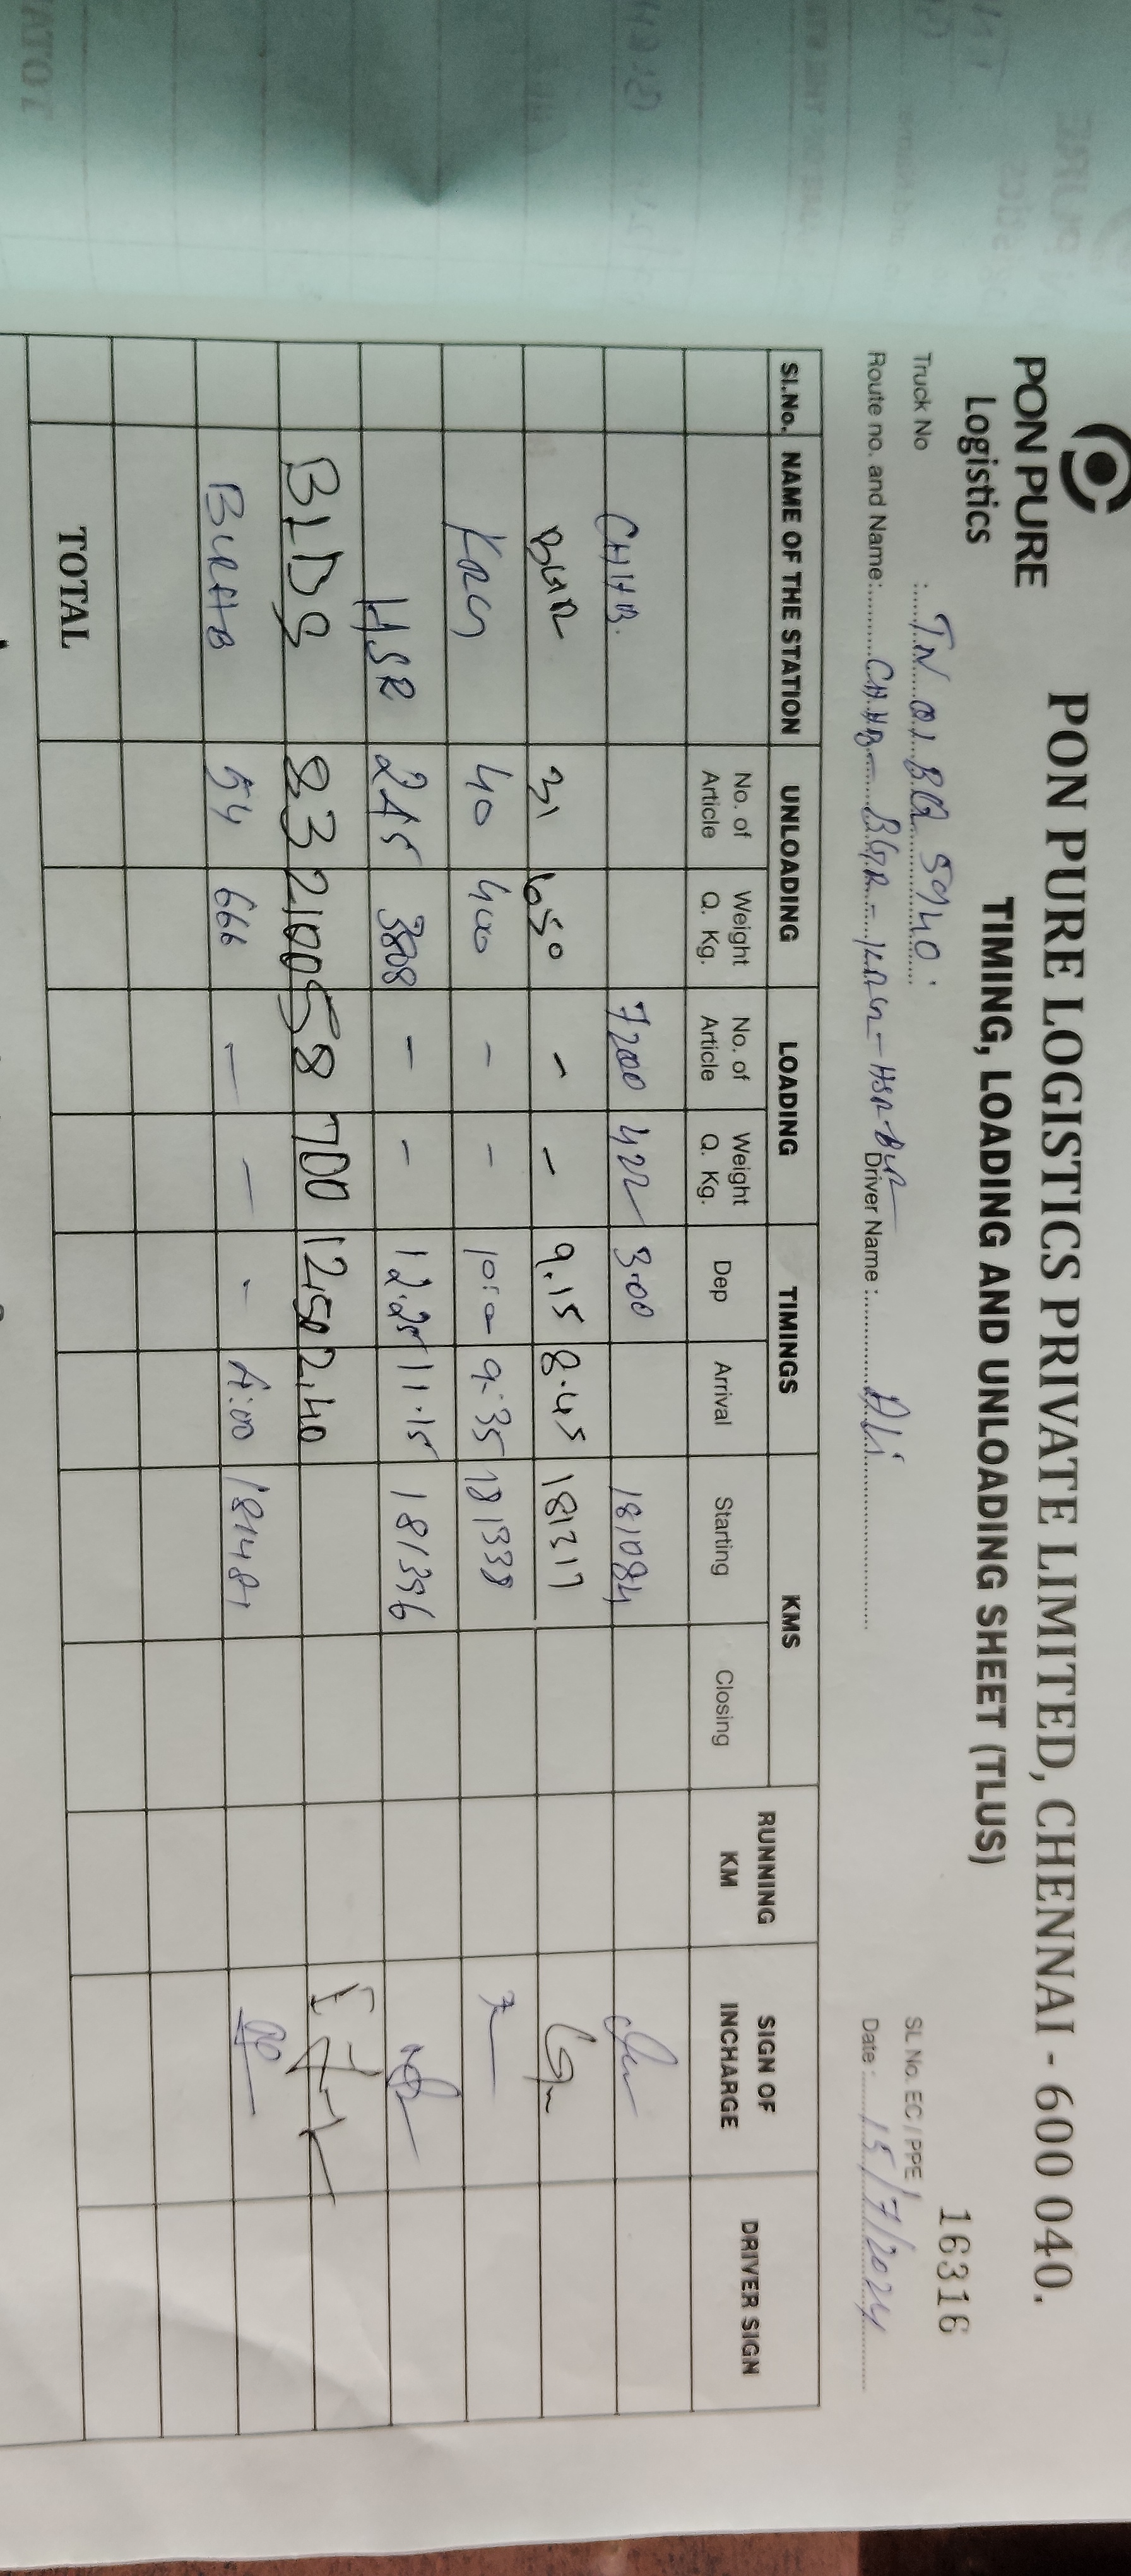 PON PURE
Logistics
PON PURE LOGISTICS PRIVATE LIMITED, CHENNAI - 600 040.
TIMING, LOADING AND UNLOADING SHEET (TLUS)
16316
SL No. EC / PPE /
Truck No : TN 01 BQ 5940
Date : 15/7/2024
Route no. and Name: CHHB - BGR - KRG - HSR - BLR Driver Name : Ali
SI.No. NAME OF THE STATION UNLOADING LOADING TIMINGS KMS RUNNING KM SIGN OF INCHARGE DRIVER SIGN
No. of Article Weight Q. Kg. No. of Article Weight Q. Kg. Dep Arrival Starting Closing
CHHB. 7200 422 3.00 181084
31 650 - - 9.15 8.45 181317
KRG 40 400 - - 10:10 9:35 181338
HSR 245 3808 - - 12.25 11.15 181396
BLDS 83 2100 58 700 1250 2.40
BLRHB 54 666 - - - 4:00 181481
TOTAL